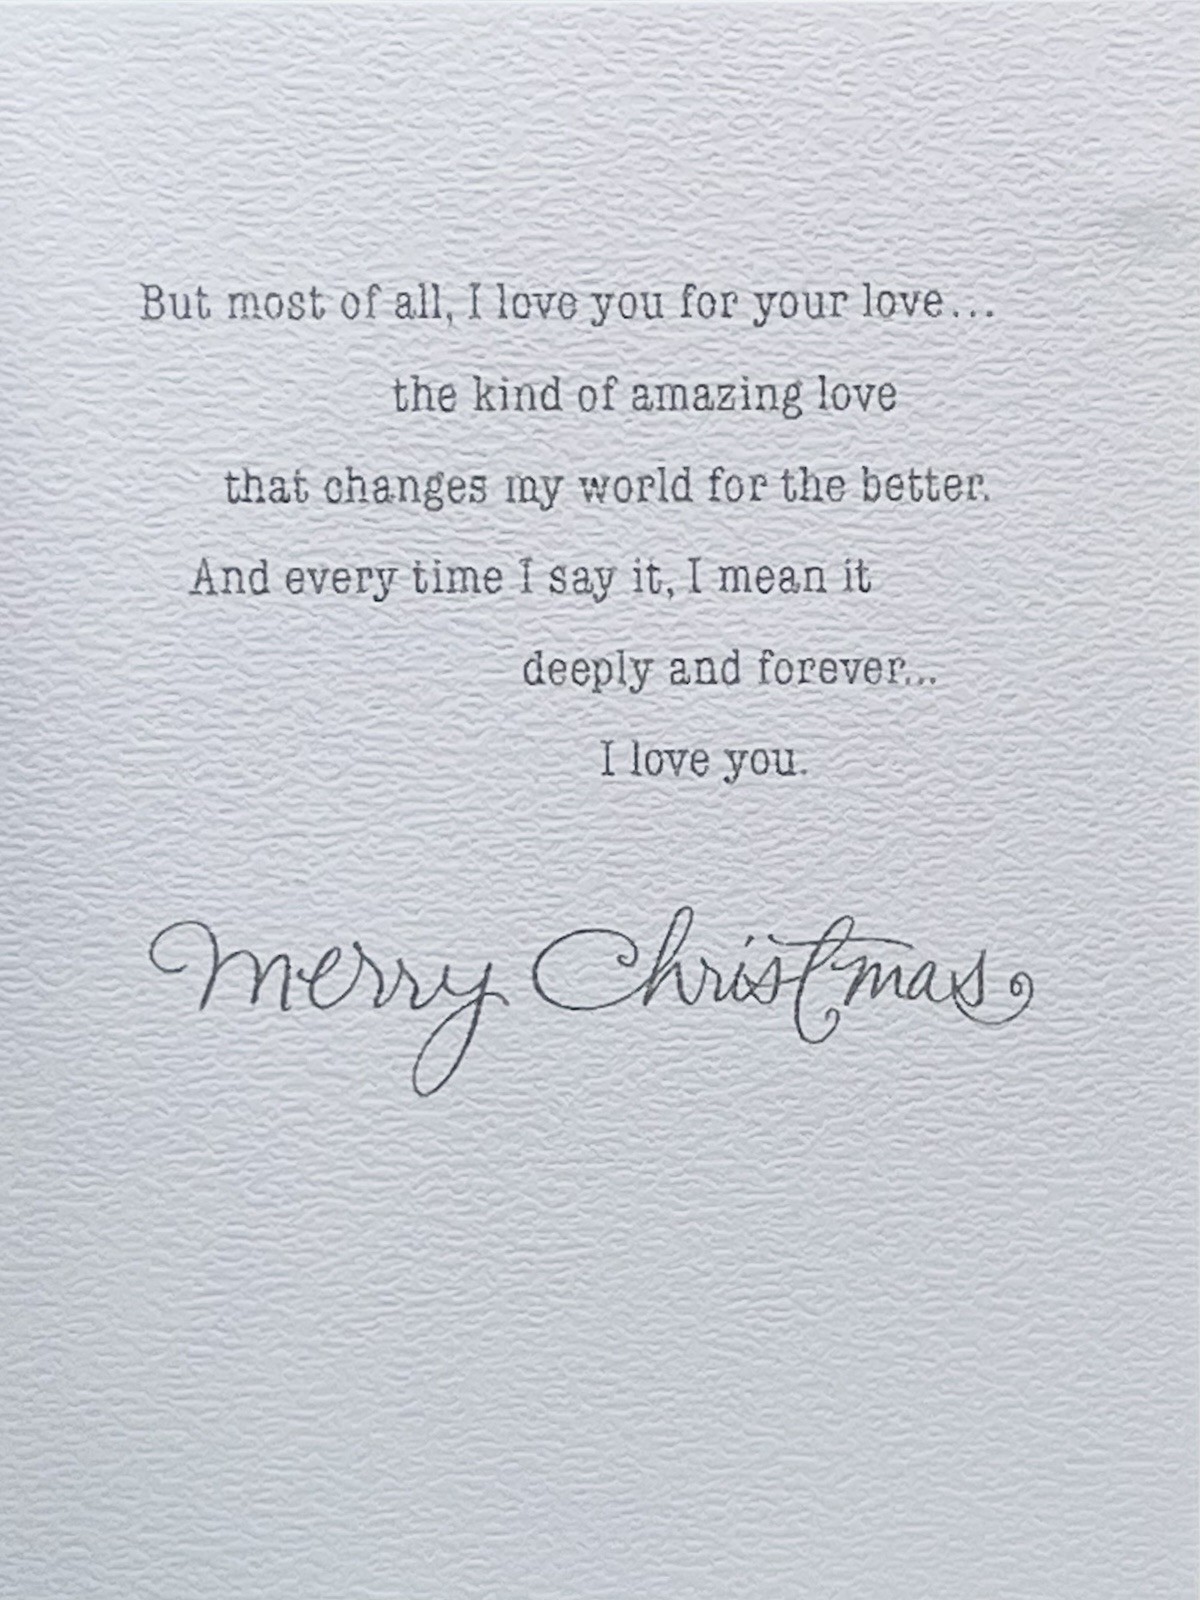 But most of all, I love you for your love...
the kind of amazing love
that changes my world for the better.
And every time I say it, I mean it
deeply and forever...
I love you.
Merry Christmas